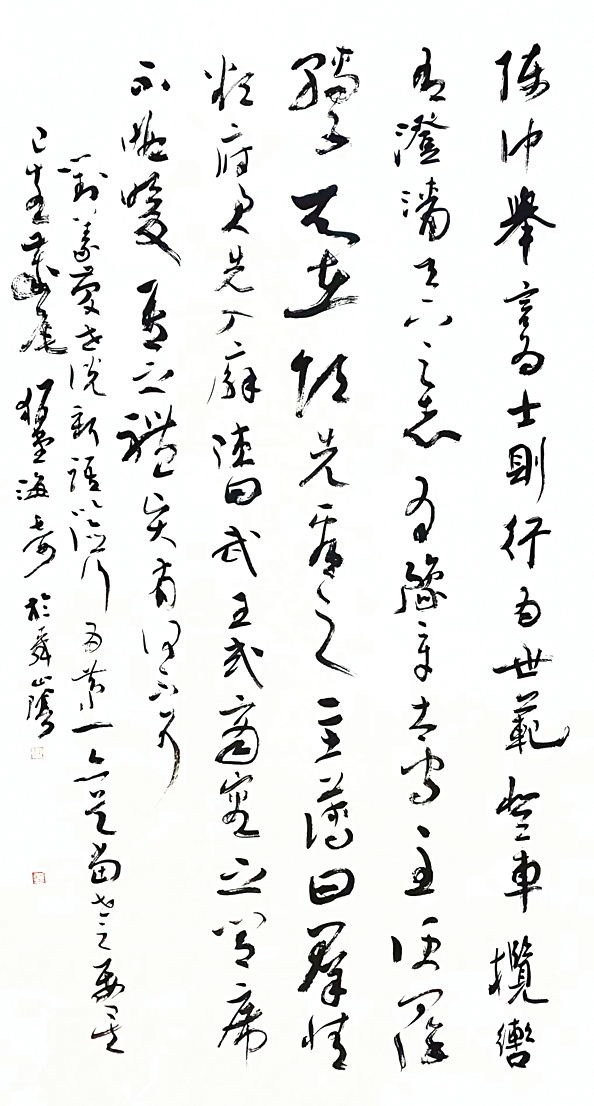 陳仲舉言為士則行為世範登車攬轡
有澄清天下之志為豫章太守至便問徐
孺子所在欲先看之主簿曰羣情
欲府君先入廨陳曰武王式商容之閭席
不暇煖吾之禮賢有何不可
劉義慶世說新語德行為第一
歲尾 海 於舜